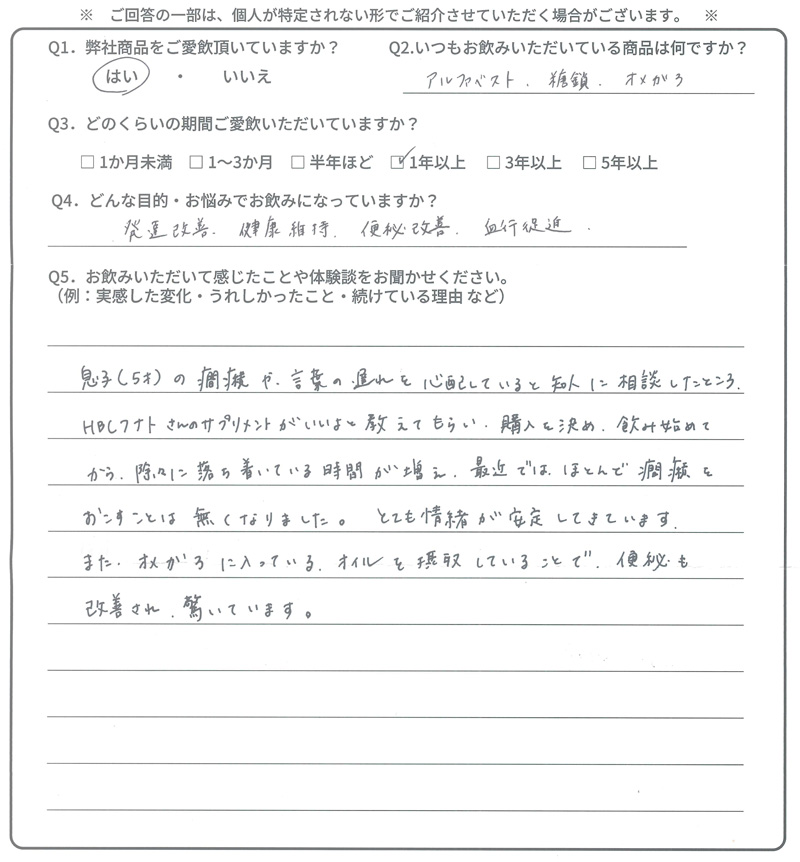 ※　ご回答の一部は、個人が特定されない形でご紹介させていただく場合がございます。　※
Q1．弊社商品をご愛飲頂いていますか？
はい　・　いいえ
Q2.いつもお飲みいただいている商品は何ですか？
アルファベスト．糖鎖．オメガ3
Q3．どのくらいの期間ご愛飲いただいていますか？
□ 1か月未満　□ 1～3か月　□ 半年ほど　☑ 1年以上　□ 3年以上　□ 5年以上
Q4．どんな目的・お悩みでお飲みになっていますか？
発達改善．健康維持．便秘改善．血行促進．
Q5．お飲みいただいて感じたことや体験談をお聞かせください。
（例：実感した変化・うれしかったこと・続けている理由 など）
息子(5才)の癇癪や、言葉の遅れを心配していると知人に相談したところ、
HBCフナトさんのサプリメントがいいよと教えてもらい、購入を決め、飲み始めて
から、除々に落ち着いている時間が増え、最近では、ほとんど癇癪を
おこすことは無くなりました。　とても情緒が安定してきています。
また、オメガ3に入っている、オイルを摂取していることで、便秘も
改善され、驚いています。